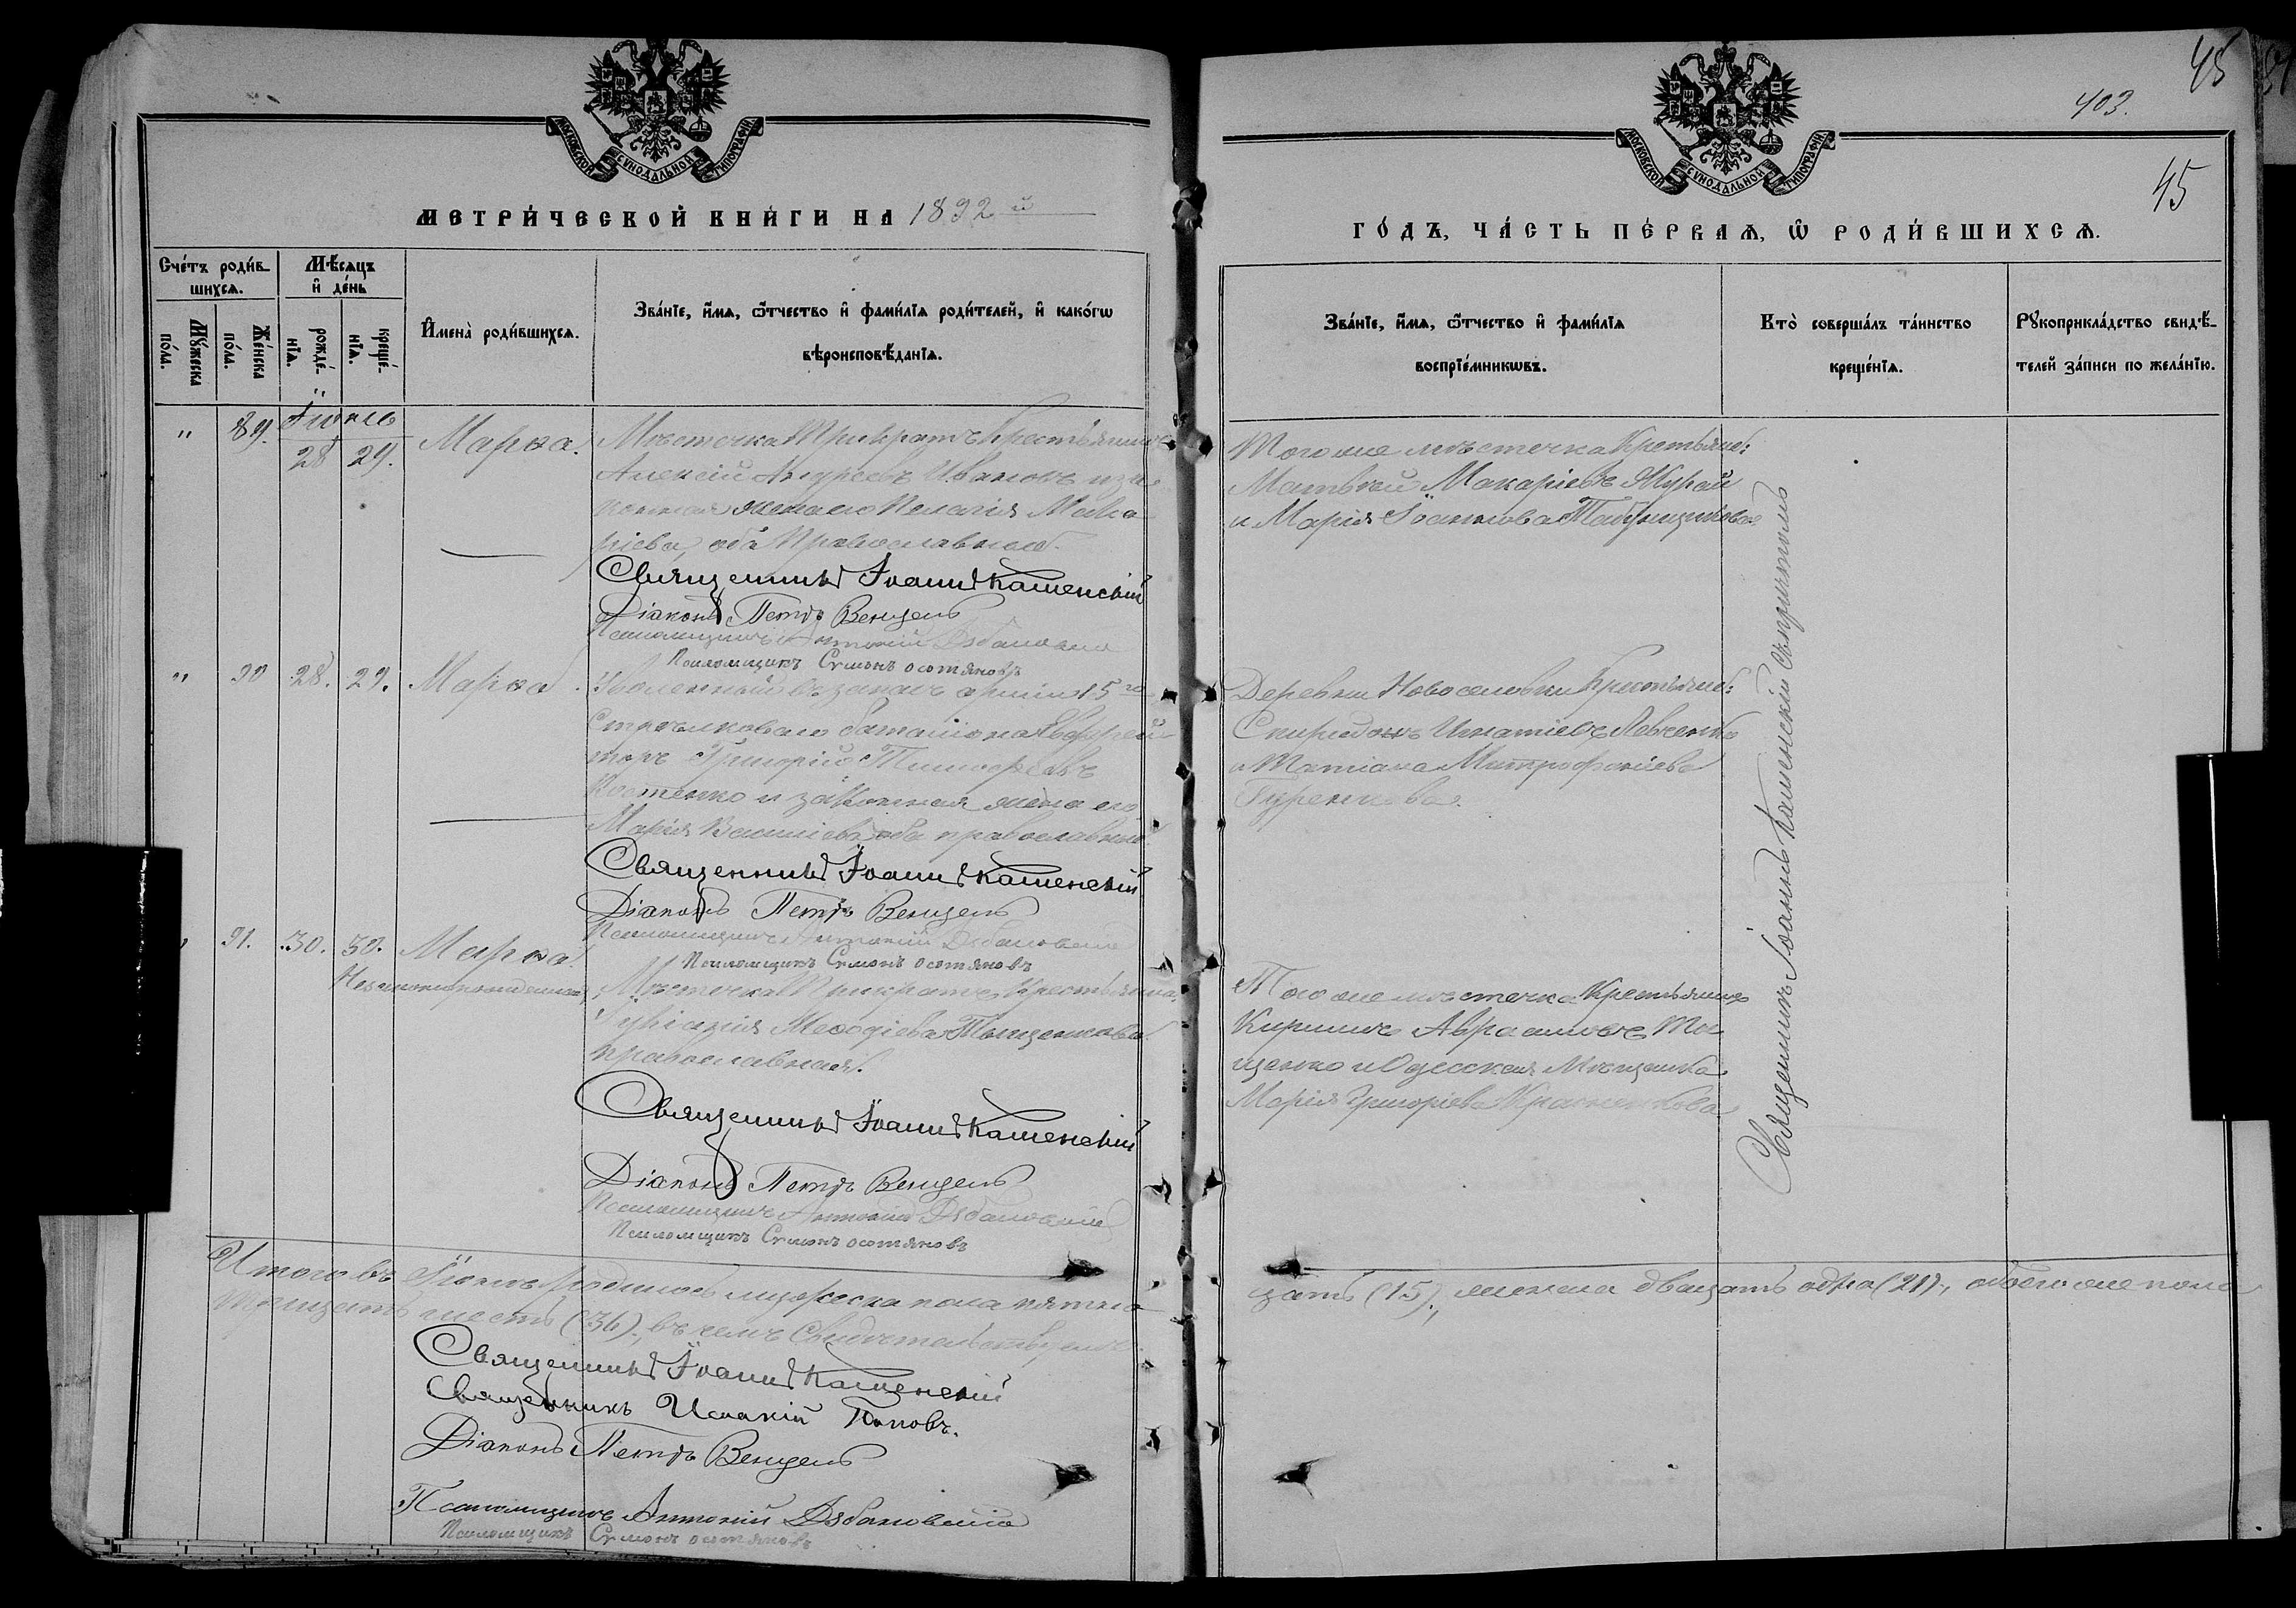 45
403.
45
МОСКОВСКОЙ СѴНОДАЛЬНОЙ ТИПОГРАФІИ
МОСКОВСКОЙ СѴНОДАЛЬНОЙ ТИПОГРАФІИ
МЕТРИ́ЧЕСКОЙ КНИ́ГИ НА 1892 й
ГО́ДЪ, ЧА́СТЬ ПЕ́РВАѦ, Ѡ҆ РОДИ́ВШИХСѦ.
Сче́тъ роди́в-
шихсѧ.
Мꙋ́жеска
по́ла.
Же́нска
по́ла.
Мѣ́сѧцъ
и҆ де́нь
рожде́-
нїѧ.
креще́-
нїѧ.
И҆мена̀ роди́вшихсѧ.
Зва́нїе, и҆́мѧ, ѻ҆́тчество и҆ фами́лїѧ роди́телей, и҆ како́гѡ
вѣроисповѣ́данїѧ.
Зва́нїе, и҆́мѧ, ѻ҆́тчество и҆ фами́лїѧ
воспрїе́мникѡвъ.
Кто̀ соверша́лъ та́инство
креще́нїѧ.
Рꙋкоприкла́дство свидѣ́-
телей за́писи по жела́нїю.
" 89. Іюнь
28 29. Марѳа.
Мѣстечка Привратъ Крестьянинъ
Алексій Андреевъ Ивановъ и за
конная жена его Пелагія Мака
ріева, оба Православные.
Священникъ Іоаннъ Каменскій
Діаконъ Петръ Венцель
Псаломщикъ Антоній
Псаломщикъ Сѵмонъ Осотяновъ
Того же мѣстечка Крестьяне:
Матвѣй Макаріевъ Журай
и Марія Іоаннова
" 90 28. 29. Марѳа.
Уволенный въ запасъ арміи 15го
Стрѣлковаго баталіона Ефрей
торъ Григорій Тимофеевъ
Костенко и законная жена его
Марія Василіева, оба православные.
Священникъ Іоаннъ Каменскій
Діаконъ Петръ Венцель
Псаломщикъ Антоній
Псаломщикъ Сѵмонъ Осотяновъ
Деревни Новоселовки Крестьяне:
Спиридонъ Игнатіевъ Левченко
и Татіана Митрофаніева
Гуренкова.
91. 30. 30. Марѳа.
Незаконнорожденная
Мѣстечка Привратъ Крестьянка
Меѳодіева Тыщенкова
православная.
Священникъ Іоаннъ Каменскій
Діаконъ Петръ Венцель
Псаломщикъ Антоній
Псаломщикъ Сѵмонъ Осотяновъ
Того же мѣстечка Крестьянинъ
Кириллъ Авраамовъ Ты
щенко и Одесская Мѣщанка
Марія Григоріева
Священникъ Іоаннъ Каменскій съ причтомъ
Итого въ Іюнѣ родилось мужеска пола пятнад
цать (15), женска двацать одна (21), обоего же пола
трицать шесть (36), въ чемъ свидѣтельствуемъ
Священникъ Іоаннъ Каменскій
Священникъ Исаакій Поповъ.
Діаконъ Петръ Венцель
Псаломщикъ Антоній
Псаломщикъ Сѵмонъ Осотяновъ